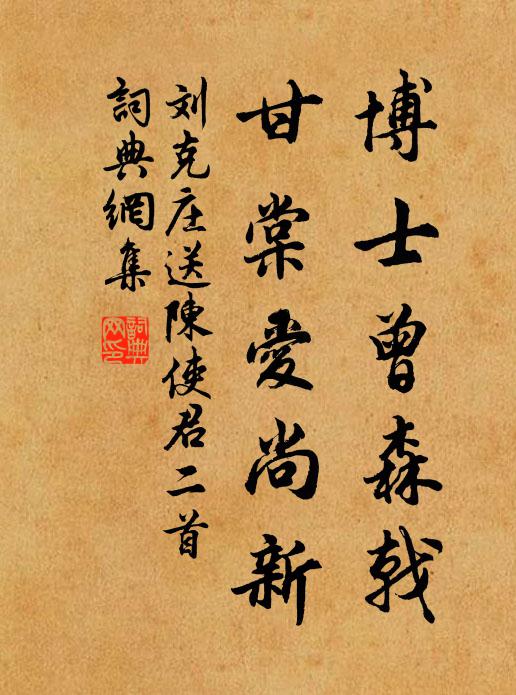 博士曾森戟
甘棠愛尚新
刘克庄送陳使君二首
詞典網集
詞典
网印